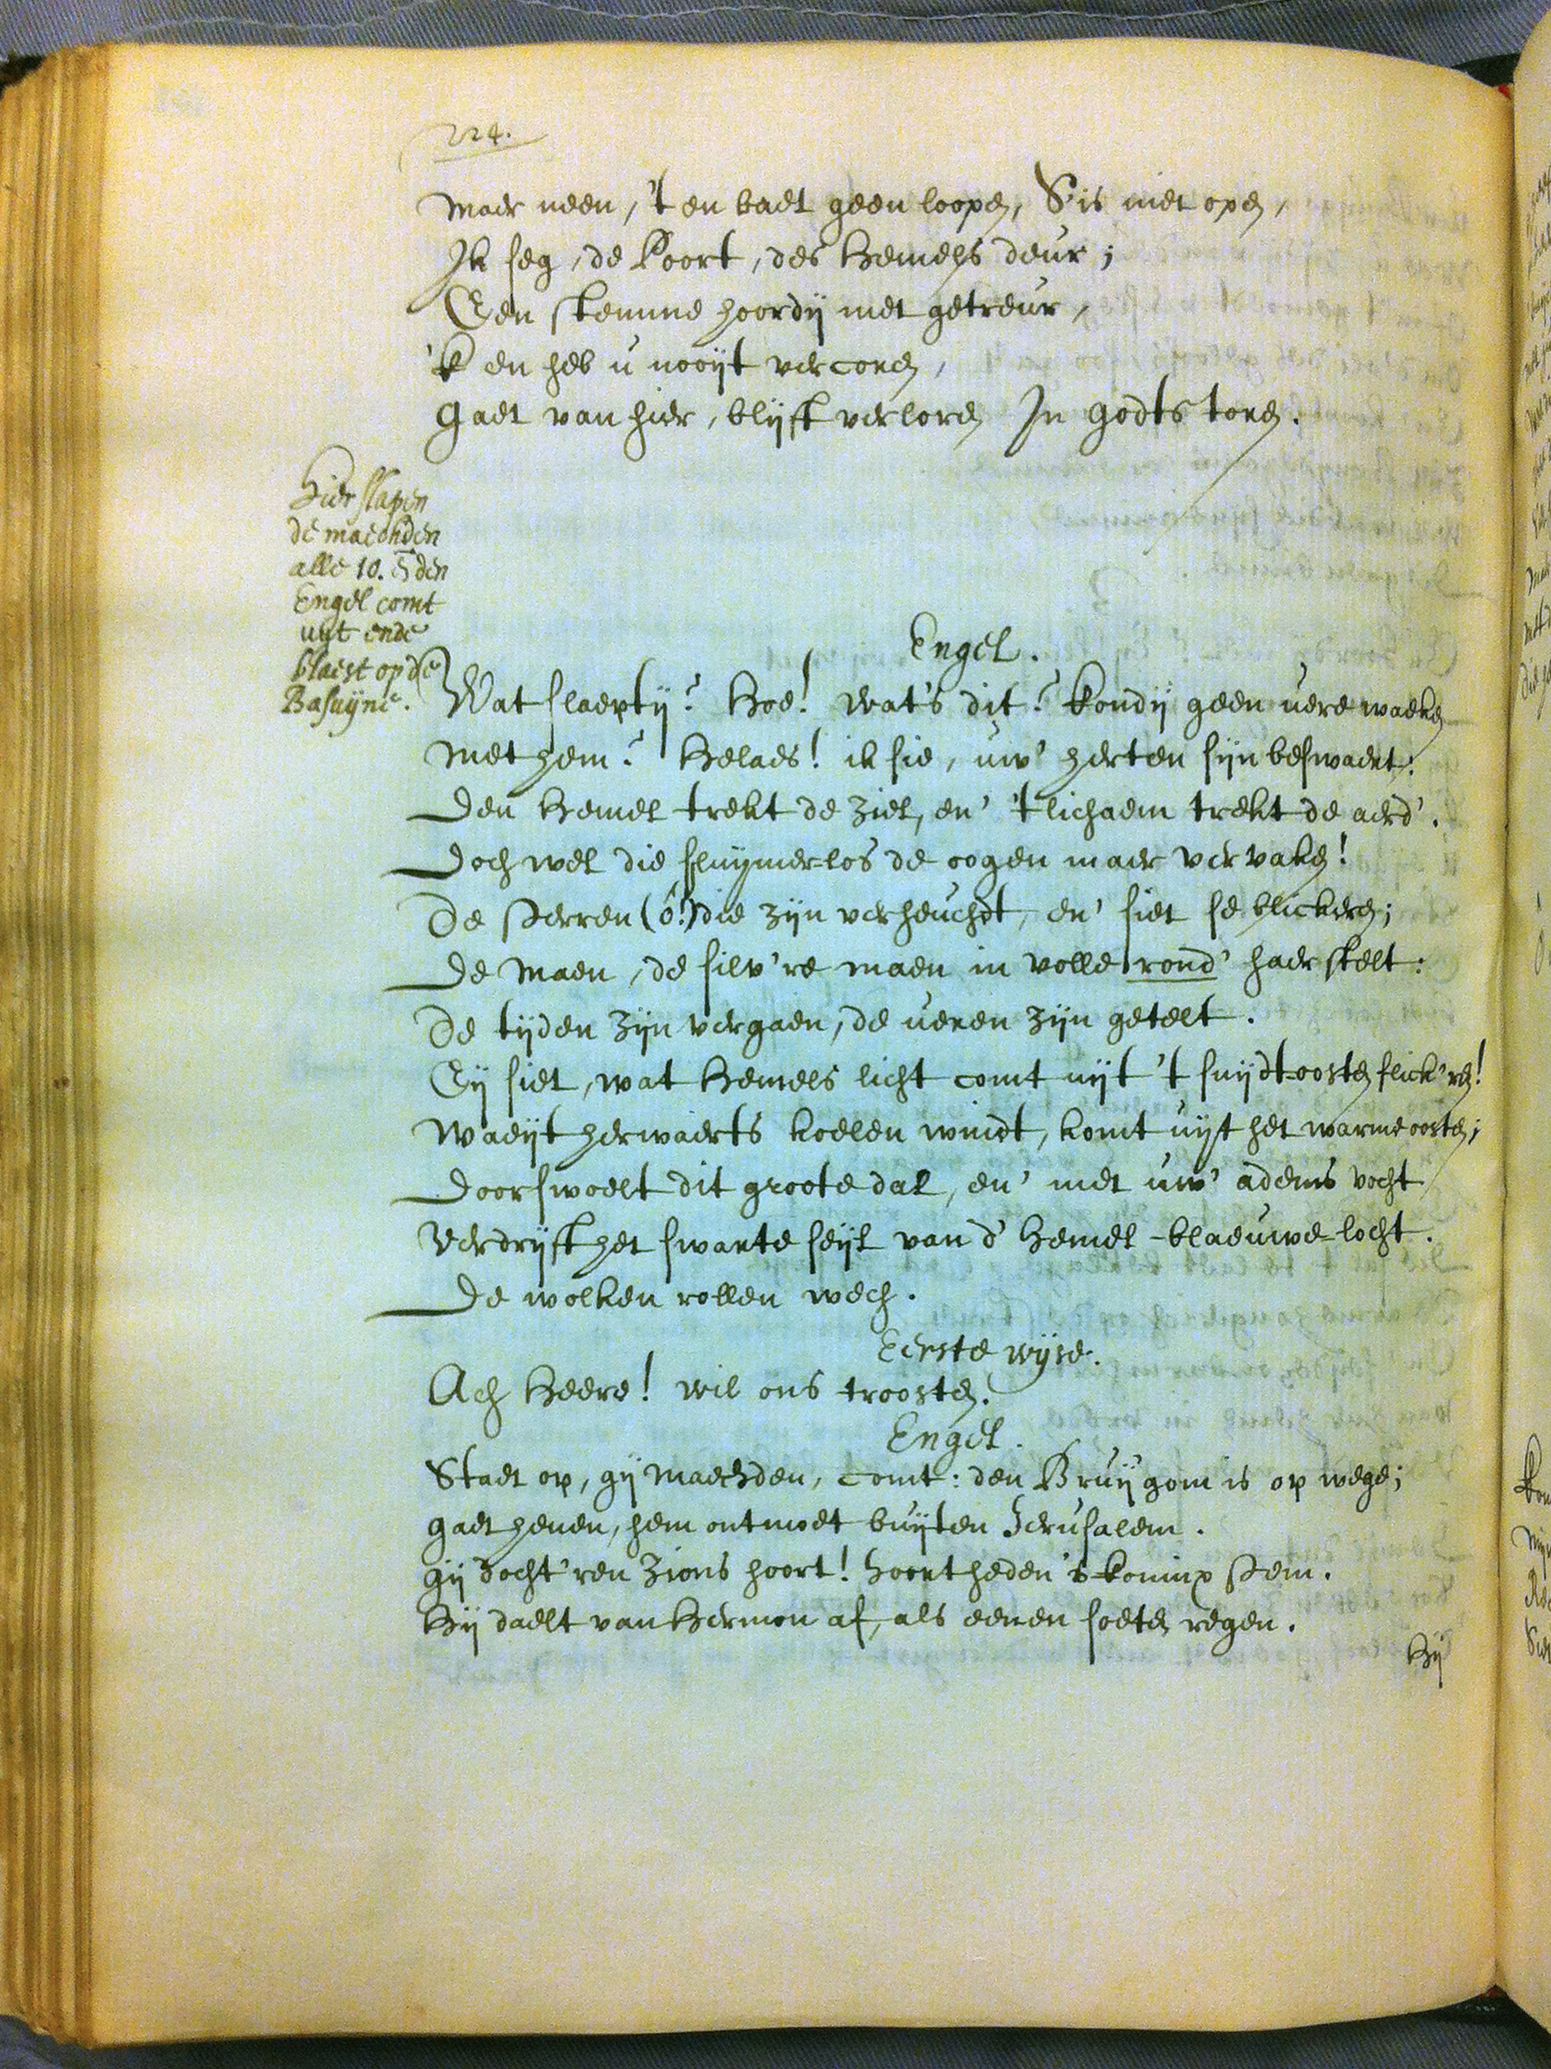 224.
Maer neen, 't en baet geen loopen, S'is niet open,
Ik seg, de Poort, des Hemels deur;
Een stemme hoordij met getreur,
'k en heb u nooijt vercoren,
Gaet van hier, blijft verloren In Godts toren.
Hier slapen
de maechden
alle 10. en den
Engel comt
uyt ende
blaest op de
Basuijne.
Engel.
Wat slaeptij? Hoe! wat's dit? kondij geen uere waeken
Met hem? Helaes! ik sie, uw' herten sijn beswaert:
Den Hemel trekt de ziel, en' 't lichaem trekt de aerd'.
Doch wel die sluijmer-los de oogen maer vervaken!
De sterren (ô!) die zijn verheucht, en' siet se blickeren;
De maen, de silv're maen in volle rond' haer stelt:
De tijden zijn vergaen, de ueren zijn getelt.
Eij siet, wat Hemels licht comt uijt 't suijdt-oosten flick'ren!
Waeijt herwaerts koelen windt, komt uijt het warme oosten;
Doorswoelt dit groote dal, en' met uw' adems vocht
Verdrijft het swarte seijl van d' Hemel-blaeuwe-locht.
De wolken rollen wech.
Eerste wijse.
Ach Heere! wil ons troosten.
Engel.
Staet op, gij Maechden, comt: den Bruijgom is op wege;
Gaet henen, hem ontmoet buijten Jerusalem.
Gij docht'ren Zions hoort! hoort heden 's koninx stem.
Hij daelt van Hermon af, als eenen soeten regen.
Hij